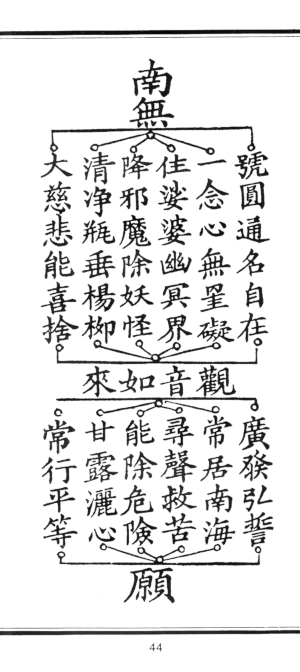 南無
號圓通名自在
一念心無罣礙
住娑婆幽冥界
降邪魔除妖怪
清净瓶垂楊柳
大慈悲能喜捨
觀音如來
廣發弘誓
常居南海
尋聲救苦
能除危險
甘露灑心
常行平等
願
44